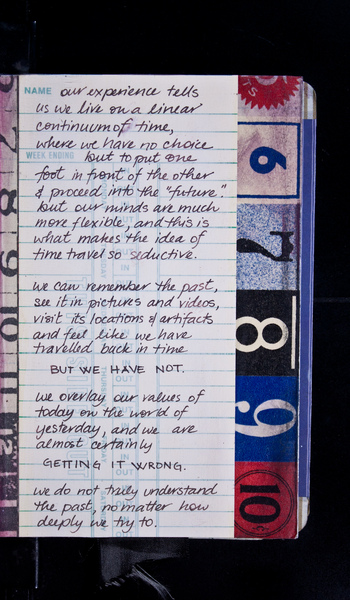 NAME our experience tells
us we live on a linear
continuum of time,
where we have no choice
WEEK ENDING but to put one
foot in front of the other
& proceed into the "future".
but our minds are much
more flexible, and this is
what makes the idea of
time travel so seductive.
we can remember the past,
see it in pictures and videos,
visit its locations & artifacts
and feel like we have
travelled back in time
BUT WE HAVE NOT.
we overlay our values of
today on the world of
yesterday, and we are
almost certainly
GETTING IT WRONG.
we do not truly understand
the past, no matter how
deeply we try to.
6
7
8
9
10
7
8
9
10
11
12